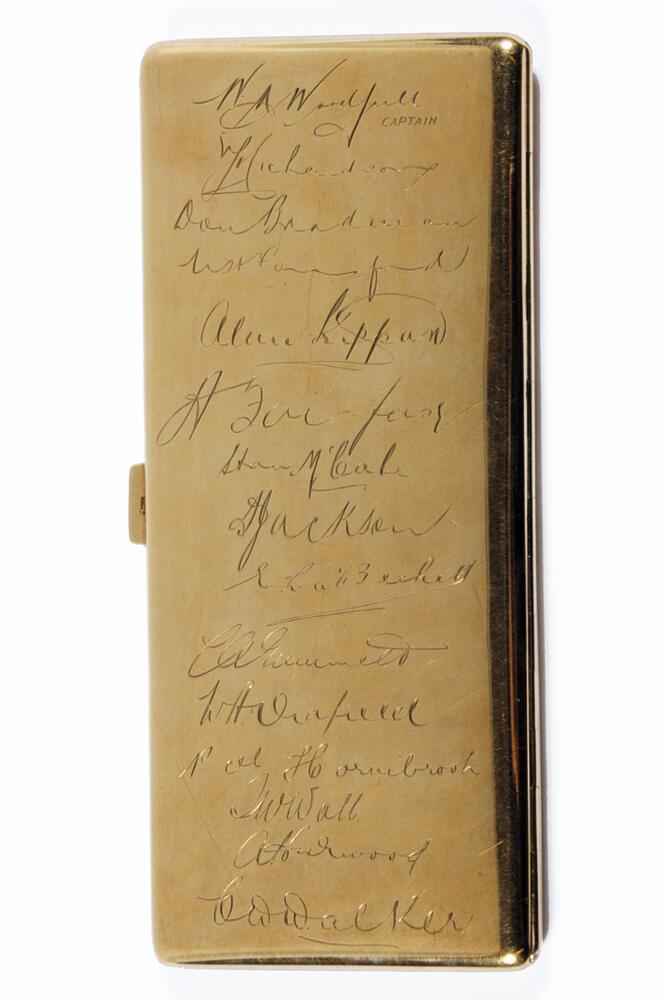 W M Woodfull
CAPTAIN
V Y Richardson
Don Bradman
W H Ponsford
Alan Kippax
A Fairfax
Stan McCabe
A Jackson
E. L. a'Beckett
C V Grimmett
W A Oldfield
P. M. Hornibrook
T. W. Wall
A Hurwood
C W Walker